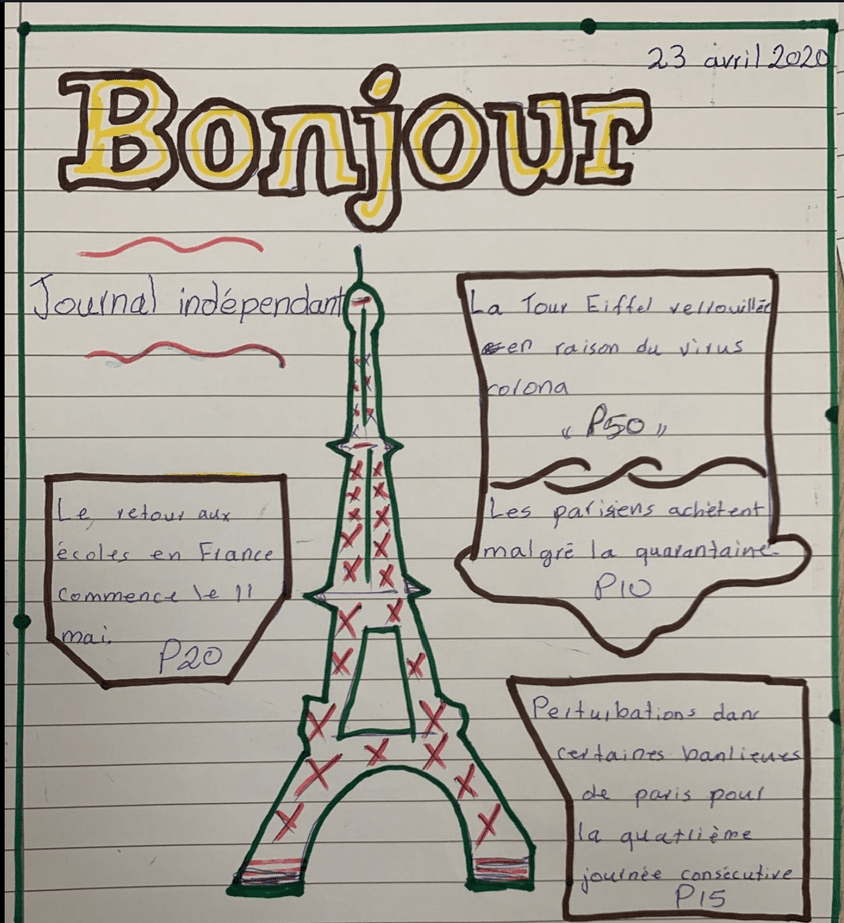 23 avril 2020
Bonjour
Journal indépendant
La Tour Eiffel verrouillée
en raison du virus
corona
« P50 »
Les parisiens achètent
malgré la quarantaine.
P10
Le retour aux
écoles en France
commence le 11
mai.
P20
Perturbations dans
certaines banlieues
de paris pour
la quatrième
journée consécutive
P15